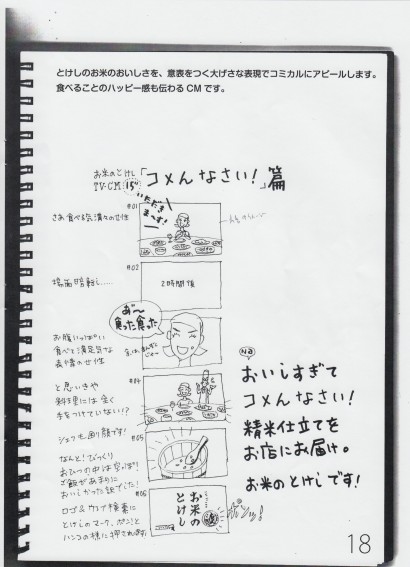 とけしのお米のおいしさを、意表をつく大げさな表現でコミカルにアピールします。
食べることのハッピー感も伝わるCMです。
お米のとけし
TV-CM 15"
「コメんなさい!」篇
#01
いただき
ま〜す!
さあ食べる気満々の女性
#02
場面暗転し……
2時間後
#03
あ〜
食った食った
お腹いっぱい
食べて満足気な
表情の女性
#04
と思いきや
料理には全く
手をつけていない!?
シェフも
#05
なんと!びっくり
おひつの中は空っぽ!
ご飯があまりに
おいしかった訳でした!
#06
ロゴ&ウェブ検索に
とけしのマーク、ポン!と
ハンコの様に押されます。
お米の
とけし
ポンッ!
Na
おいしすぎて
コメんなさい!
精米仕立てを
お店にお届け。
お米のとけしです!
18